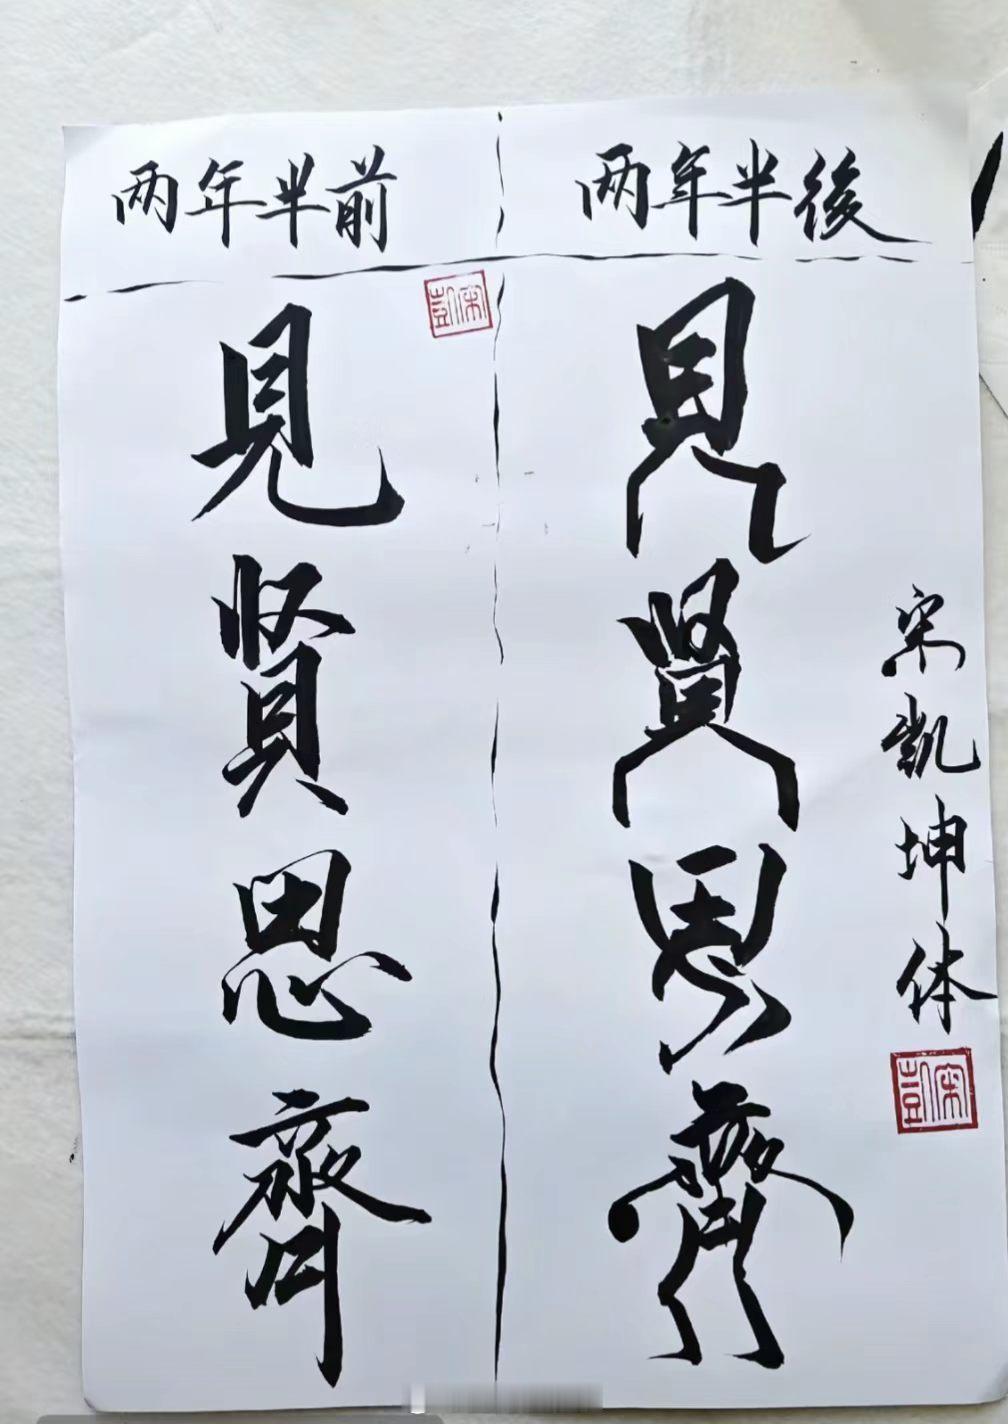 两年半前
两年半後
見賢思齊
見賢思齊
宋凯坤体